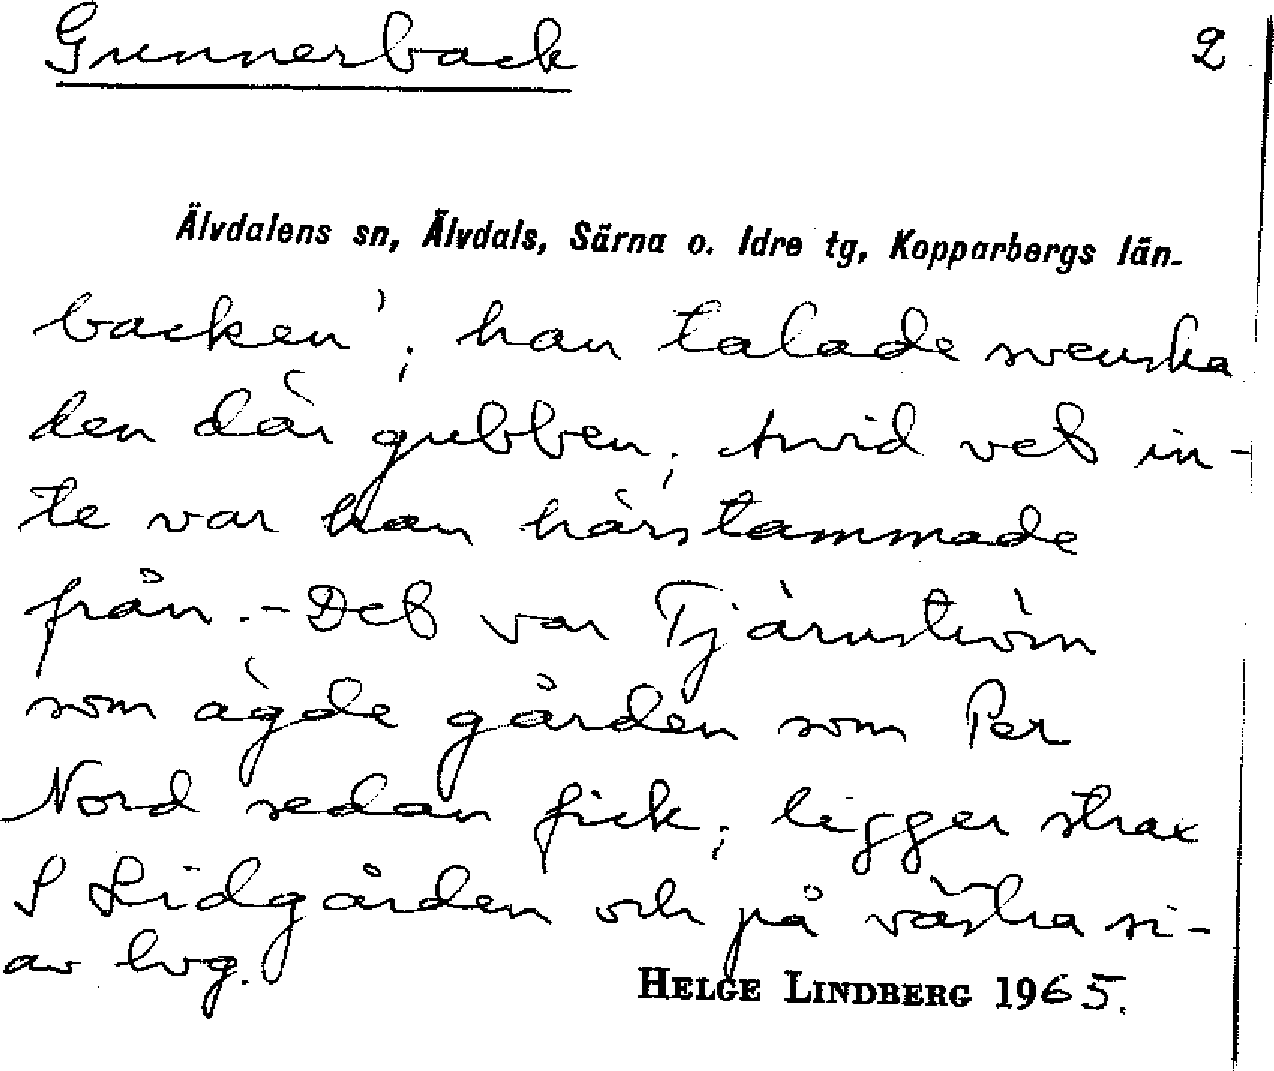 Gunnerback 2
Älvdalens sn, Älvdals, Särna o. Idre tg, Kopparbergs län.
backen'; han talade svenska
den där gubben; Arvid vet in-
te var han härstammade
från. - Det var Tjärnström
som ägde gården som Per
Nord sedan fick; ligger strax
S Lidgården och på västra si-
av lvg.
HELGE LINDBERG 1965.